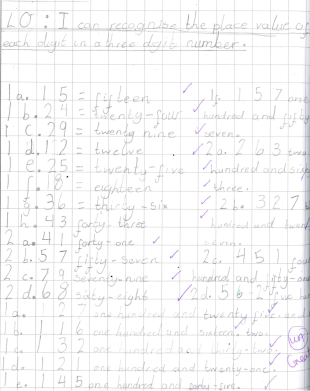 LO: I can recognise the place value of
each digit in a three digit number.
1a. 15 = fifteen
1b. 24 = twenty-four
1c. 29 = twenty nine
1d. 12 = twelve
1e. 25 = twenty-five
1f. 18 = eighteen
1g. 36 = thirty-six
1h. 43 forty-three
2a. 41 forty-one
2b. 57 fifty-seven
2c. 79 seventy-nine
2d. 68 sixty-eight
one hundred and twenty five
1b. 116 one hundred and sixteen
1c. 132 one hundred
1d. 121 one hundred and twenty-one
1e. 145 one hundred and forty-five.
1f. 157 one
hundred and fifty
seven.
2a. 263 two
hundred and sixty
three.
2b. 327
hundred and twenty
seven.
2c. 451 four
hundred and fifty-one
2d. 562 five hun
and
two.